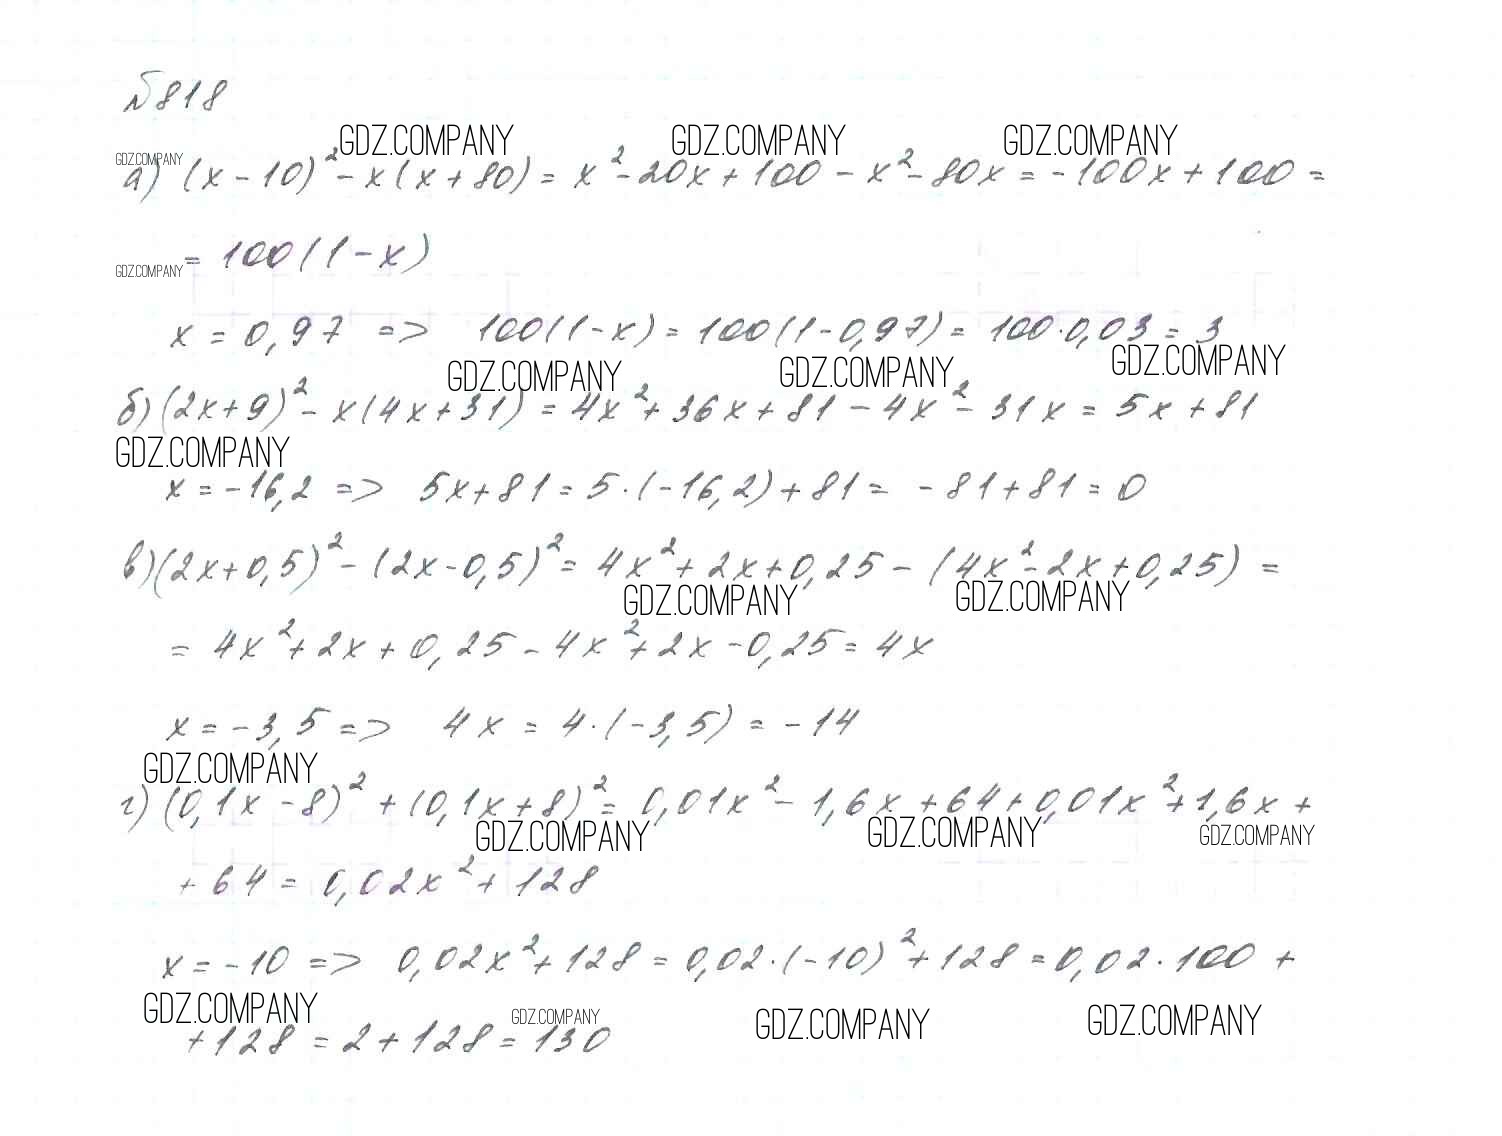 №818
GDZ.COMPANY GDZ.COMPANY GDZ.COMPANY
GDZ.COMPANY
а) (x-10)²-x(x+80)=x²-20x+100-x²-80x=-100x+100=
=100(1-x)
GDZ.COMPANY
x=0,97 => 100(1-x)=100(1-0,97)=100·0,03=3
GDZ.COMPANY GDZ.COMPANY GDZ.COMPANY
б)(2x+9)²-x(4x+31)=4x²+36x+81-4x²-31x=5x+81
GDZ.COMPANY
x=-16,2 => 5x+81=5·(-16,2)+81=-81+81=0
в)(2x+0,5)²-(2x-0,5)²=4x²+2x+0,25-(4x²-2x+0,25)=
GDZ.COMPANY GDZ.COMPANY
=4x²+2x+0,25-4x²+2x-0,25=4x
x=-3,5=> 4x=4·(-3,5)=-14
GDZ.COMPANY
г)(0,1x-8)²+(0,1x+8)²=0,01x²-1,6x+64+0,01x²+1,6x+
GDZ.COMPANY GDZ.COMPANY GDZ.COMPANY
+64=0,02x²+128
x=-10 => 0,02x²+128=0,02·(-10)²+128=0,02·100+
GDZ.COMPANY GDZ.COMPANY GDZ.COMPANY GDZ.COMPANY
+128=2+128=130